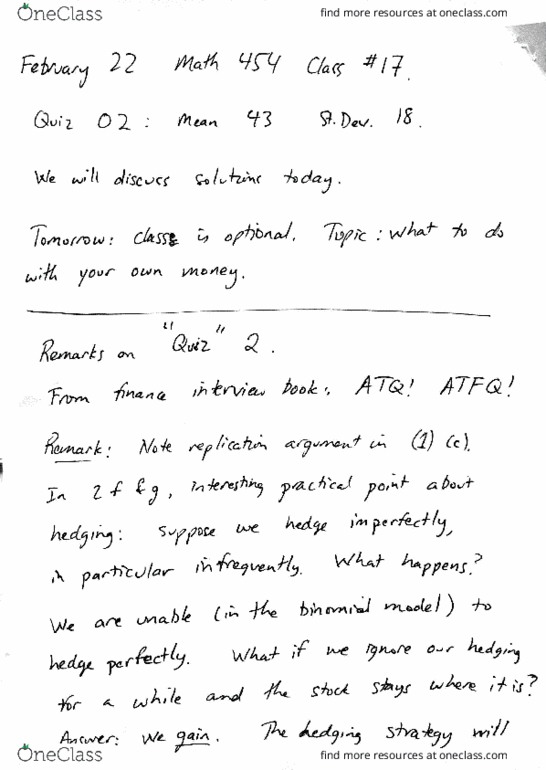 OneClass
find more resources at oneclass.com
February 22 Math 454 Class #17.
Quiz 02: Mean 43 St. Dev. 18.
We will discuss solutions today.
Tomorrow: class is optional. Topic: What to do
with your own money.
Remarks on "Quiz" 2.
From finance interview book: ATQ! ATFQ!
Remark: Note replication argument in (1) (c).
In 2 f & g, interesting practical point about
hedging: suppose we hedge imperfectly,
in particular infrequently. What happens?
We are unable (in the binomial model) to
hedge perfectly. What if we ignore our hedging
for a while and the stock stays where it is?
Answer: We gain. The hedging strategy will
OneClass
find more resources at oneclass.com